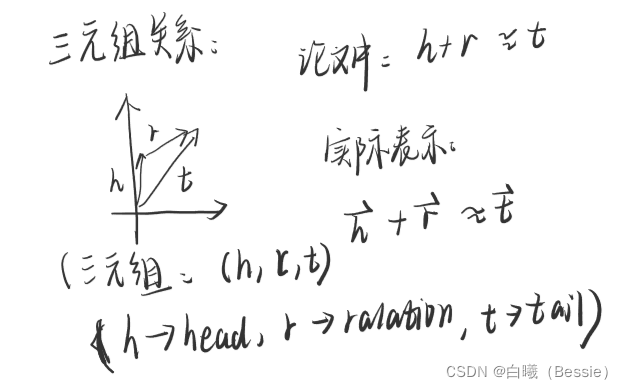 三元组关系：
论文中：h+r≈t
h r t
实际表示：
h⃗ + r⃗ ≈ t⃗
(三元组：(h, r, t)
(h→head, r→ralation, t→tail)
CSDN @白曦（Bessie）